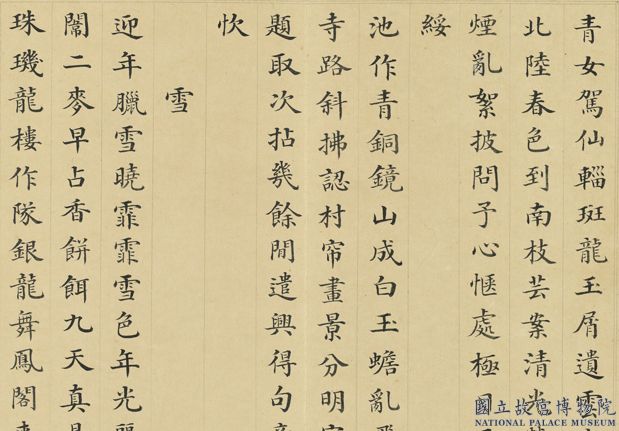 青女駕仙輜斑龍玉屑遺雲
北陸春色到南枝芸案清光
煙亂絮披問予心愜處極目
綏
池作青銅鏡山成白玉蟾亂飛
寺路斜拂認村帘畫景分明
題取次拈幾餘閒遣興得句
忺
雪
迎年臘雪曉霏霏雪色年光
闈二麥早占香餅餌九天真
珠璣龍樓作隊銀龍舞鳳閣
國立故宮博物院
NATIONAL PALACE MUSEUM